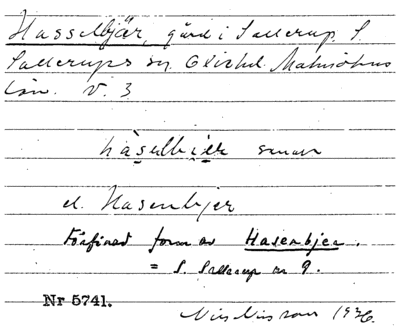 Hasselbjär, gård i Sallerup S.
Sallerups sn. Oxie hd. Malmöhus
län. V. 3
hàsəlbiɛr senare
el. Hasenbjer
Förfinad form av Hasenbjer.
= S. Sallerup nr 9.
Nr 5741.
Nils Nilsson 1936.